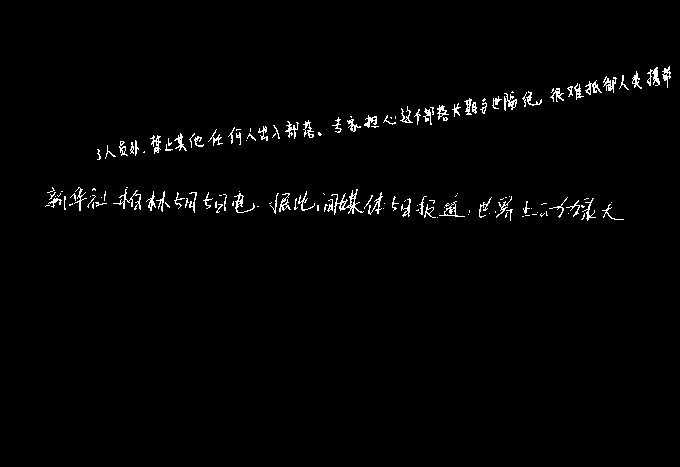 3人员外，禁止其他任何人出入部落。专家担心这个部落长期与世隔绝，很难抵御人类携带
新华社柏林5月5日电，据此间媒体5日报道，世界上功率最大